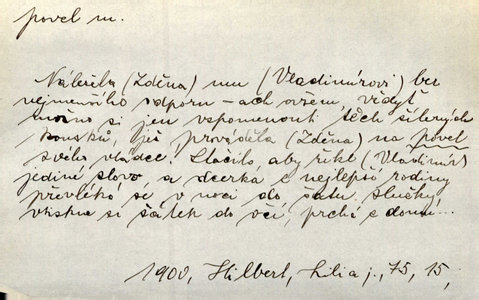 povel m.
Náležela (Zděna) mu (Vladimírovi) bez
nejmenšího odporu – ach ovšem, vždyť
možno si jen vzpomenouti těch šílených
kousků, jež prováděla (Zděna) na povel
svého vládce! Stačilo, aby řekl (Vladimír)
jediné slovo, a dcerka z nejlepší rodiny
převléká se v noci do šatů služky,
vtiskne si šátek do očí, prchá z domu...
1900, Hilbert, Lilia j., 75, 15,